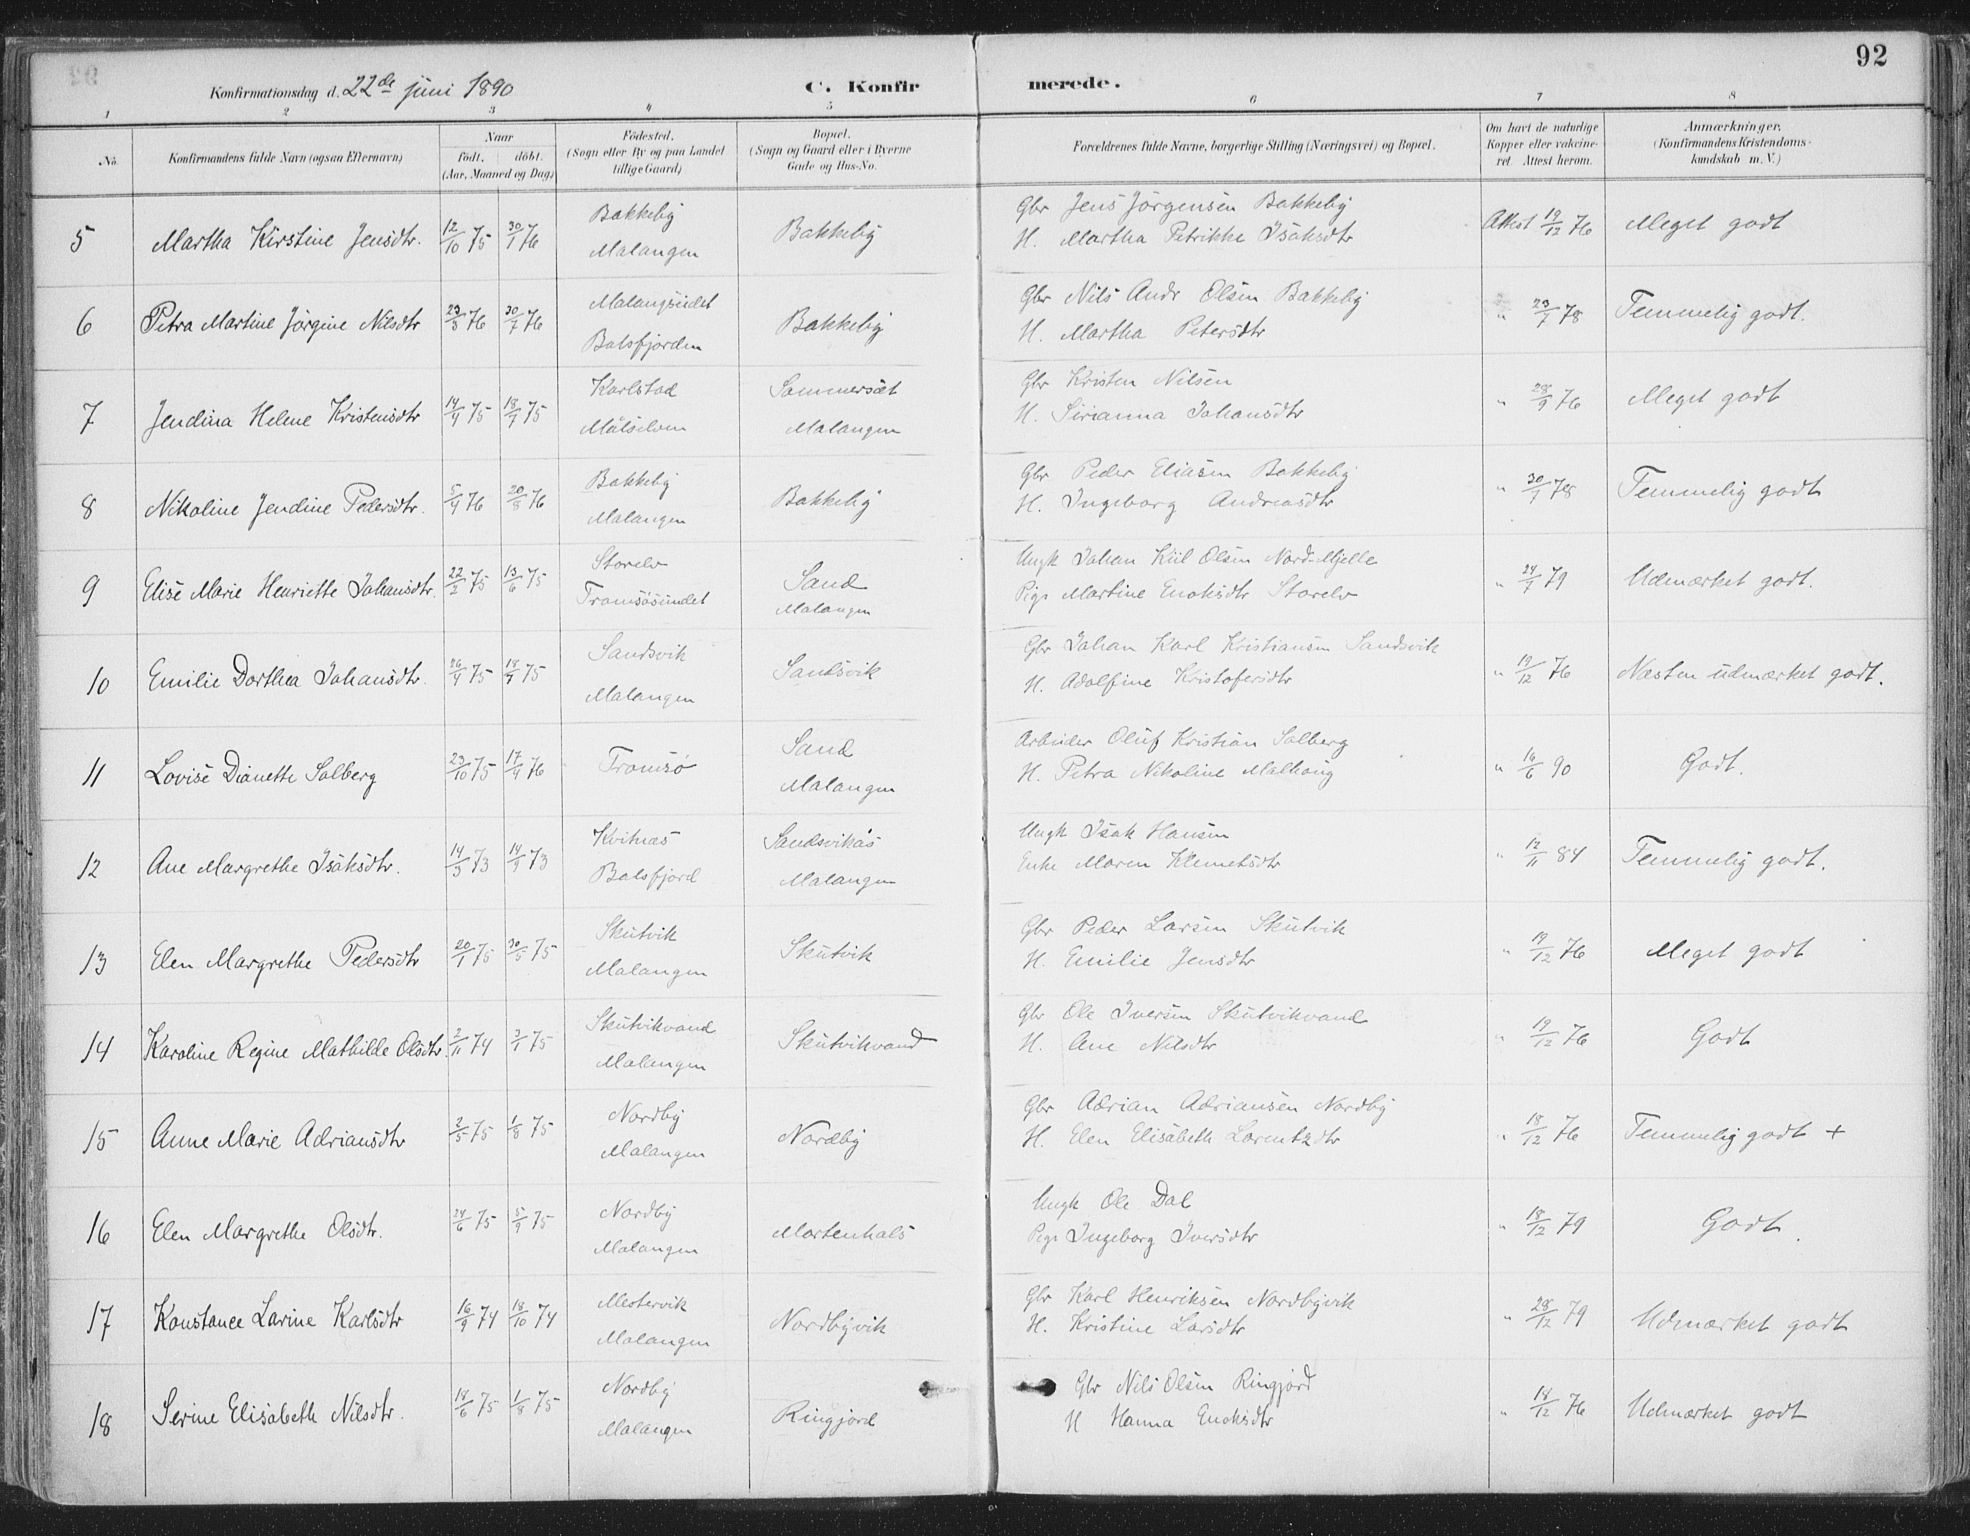 92
Konfirmationsdag d. 22de juni 1890 C. Konfirmerede.
1 2 3 4 5 6 7 8
No. Konfirmandens fulde Navn (ogsaa Efternavn) Naar födt, döbt. (Aar, Maaned og Dag) Födested. (Sogn eller By og paa Landet tillige Gaard) Bopæl. (Sogn og Gaard eller i Byerne Gade og Hus-No. Forældrenes fulde Navne, borgerlige Stilling (Næringsvei) og Bopæl. Om havt de naturlige Kopper eller vakcineret. Attest herom. Anmærkninger. (Konfirmandens Kristendomskundskab m. V.)
5 Martha Kirstine Jensdtr. 12/10 75 30/1 76 Bakkeby Malangen Bakkeby Gbr Jens Jörgensen Bakkeby H. Martha Petrikke Isaksdtr Attest 19/12 76 Meget godt
6 Petra Martine Jörgine Nilsdtr 23/3 76 30/7 76 Malangseidet Balsfjorden Bakkeby Gbr Nils Andr Olsen Bakkeby H. Martha Petersdtr " 23/7 78 Temmelig godt.
7 Jendina Helene Kristensdtr 14/4 75 18/7 75 Karlstad Målselven Sommersæt Malangen Gbr Kristen Nilsen H. Sirianna Johansdtr " 28/9 76 Meget godt
8 Nikoline Jendine Pedersdtr. 5/4 76 20/8 76 Bakkeby Malangen Bakkeby Gbr Peder Eliasen Bakkeby H. Ingeborg Andreasdtr " 30/7 78 Temmelig godt
9 Elise Marie Henriette Johansdtr. 22/2 75 13/6 75 Storelv Tromsösundet Sand Malangen Ungk Johan Kiil Olsen Nord-Mjelle Pige Martine Enoksdtr Storelv " 24/7 79 Udmærket godt.
10 Emilie Dorthea Johansdtr. 26/4 75 18/7 75 Sandsvik Malangen Sandsvik Gbr Johan Karl Kristiansen Sandsvik H. Adolfine Kristofersdtr " 19/12 76 Næsten udmærket godt.
11 Lovise Dianette Solberg 23/10 75 17/4 76 Tromsö Sand Malangen Arbeider Oluf Kristian Solberg H. Petra Nikoline Malhaug " 16/6 90 Godt.
12 Ane Margrethe Isaksdtr. 14/3 73 14/9 73 Kvitnæs Balsfjord Sandsvikås Malangen Ungk Isak Hansen Enke Maren Klemetsdtr " 12/11 84 Temmelig godt.
13 Elen Margrethe Pedersdtr 20/1 75 30/5 75 Skutvik Malangen Skutvik Gbr Peder Larsen Skutvik H. Emilie Jensdtr " 19/12 76 Meget godt
14 Karoline Regine Mathilde Olsdtr. 2/11 74 3/1 75 Skutvikvand Malangen Skutvikvand Gbr Ole Iversen Skutvikvand H. Ane Nilsdtr " 19/12 76 Godt
15 Anne Marie Adriansdtr 2/5 75 1/8 75 Nordby Malangen Nordby Gbr Adrian Adriansen Nordby H. Elen Elisabeth Lorentzdtr " 18/12 76 Temmelig godt +
16 Elen Margrethe Olsdtr. 24/6 75 5/9 75 Nordby Malangen Mortenhals Ungk Ole Dal Pige Ingeborg Iversdtr " 18/12 79 Godt.
17 Konstance Larine Karlsdtr 16/9 74 18/10 74 Mestervik Malangen Nordbyvik Gbr Karl Henriksen Nordbyvik H. Kristine Larsdtr " 28/12 79 Udmærket godt
18 Serine Elisabeth Nilsdtr. 18/6 75 1/8 75 Nordby Malangen Ringjord Gbr Nils Olsen Ringjord H Hanna Enoksdtr " 18/12 76 Udmærket godt